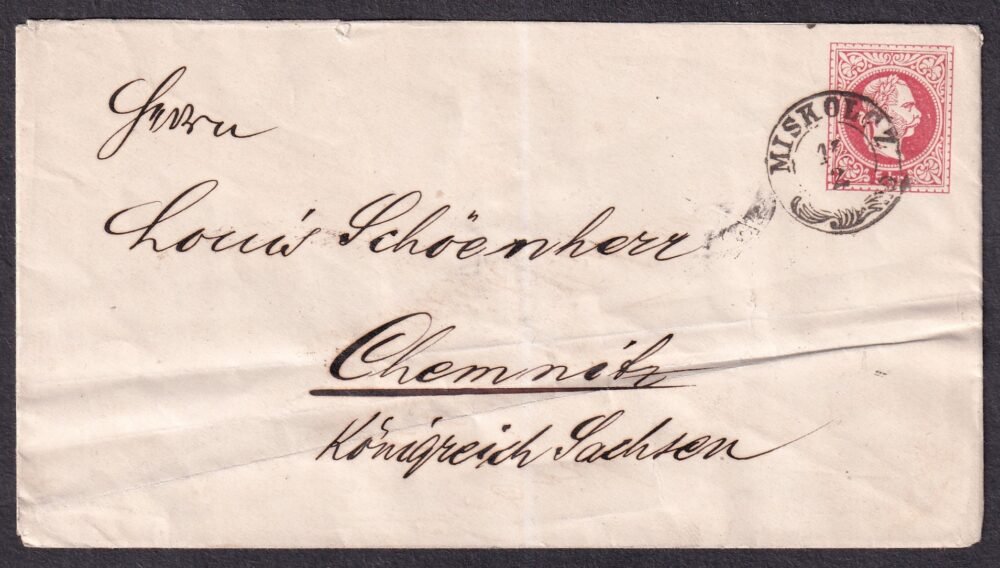 MISKOLCZ
Herrn
Louis Schöenherr
Chemnitz
Königreich Sachsen